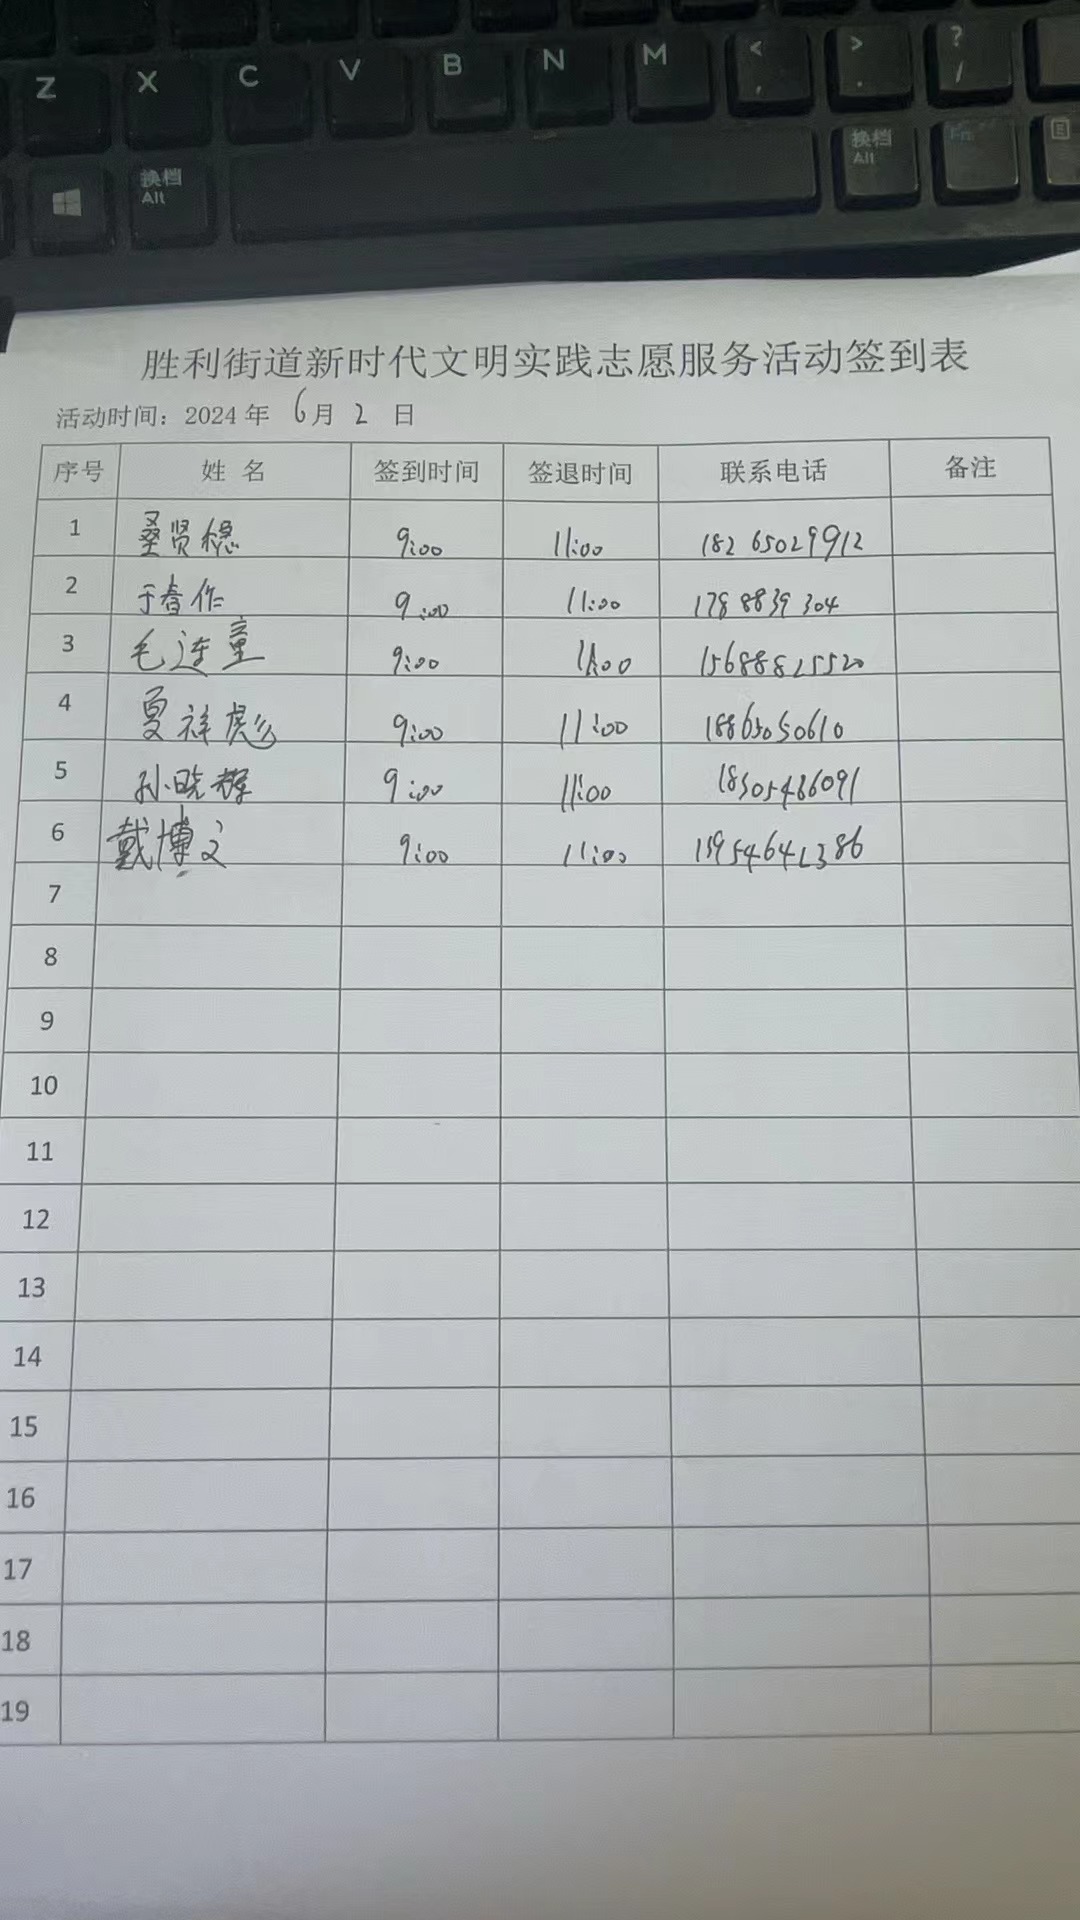 Z X C V B N M < , > . ? /
换档 Alt 换档 Alt Fn
胜利街道新时代文明实践志愿服务活动签到表
活动时间：2024年 6月 2 日
序号 姓名 签到时间 签退时间 联系电话 备注
1 桑贤稳 9:00 11:00 18265029912
2 于春作 9:00 11:00 1788839304
3 毛连童 9:00 11:00 15688825520
4 夏祥彪 9:00 11:00 18865050610
5 孙晓辉 9:00 11:00 18305486091
6 戴博文 9:00 11:00 15954642386
7
8
9
10
11
12
13
14
15
16
17
18
19